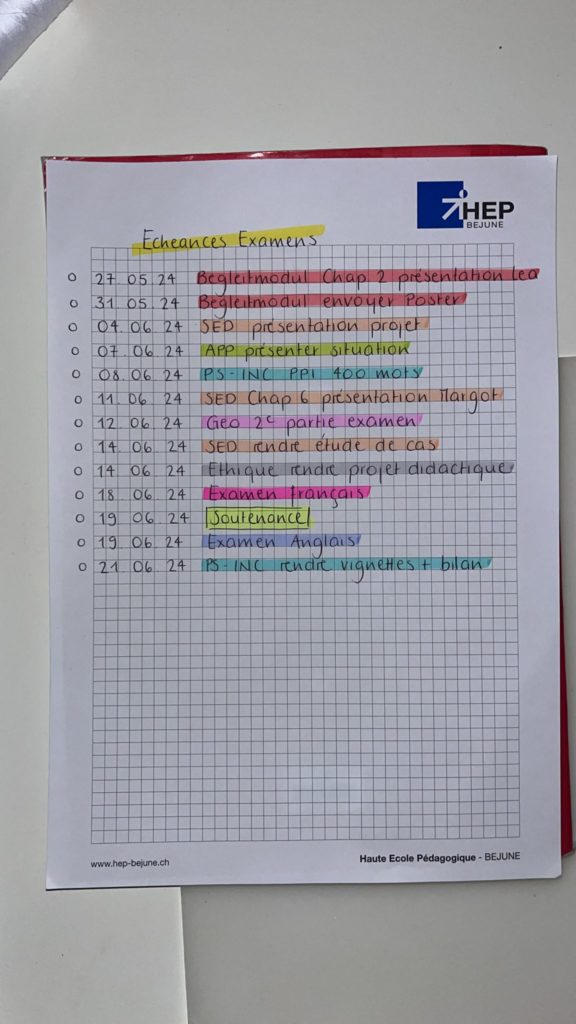 HEP
BEJUNE
Echeances Examens
o 27.05.24 Begleitmodul Chap 2 présentation Lea
o 31.05.24 Begleitmodul envoyer Poster
o 04.06.24 SED présentation projet
o 07.06.24 APP présenter situation
o 08.06.24 PS-INC PPI 400 mots
o 11.06.24 SED Chap 6 présentation Margot
o 12.06.24 Geo 2e partie examen
o 14.06.24 SED rendre étude de cas
o 14.06.24 Ethique rendre projet didactique
o 18.06.24 Examen français
o 19.06.24 Soutenance
o 19.06.24 Examen Anglais
o 21.06.24 PS-INC rendre vignettes + bilan
www.hep-bejune.ch
Haute Ecole Pédagogique - BEJUNE